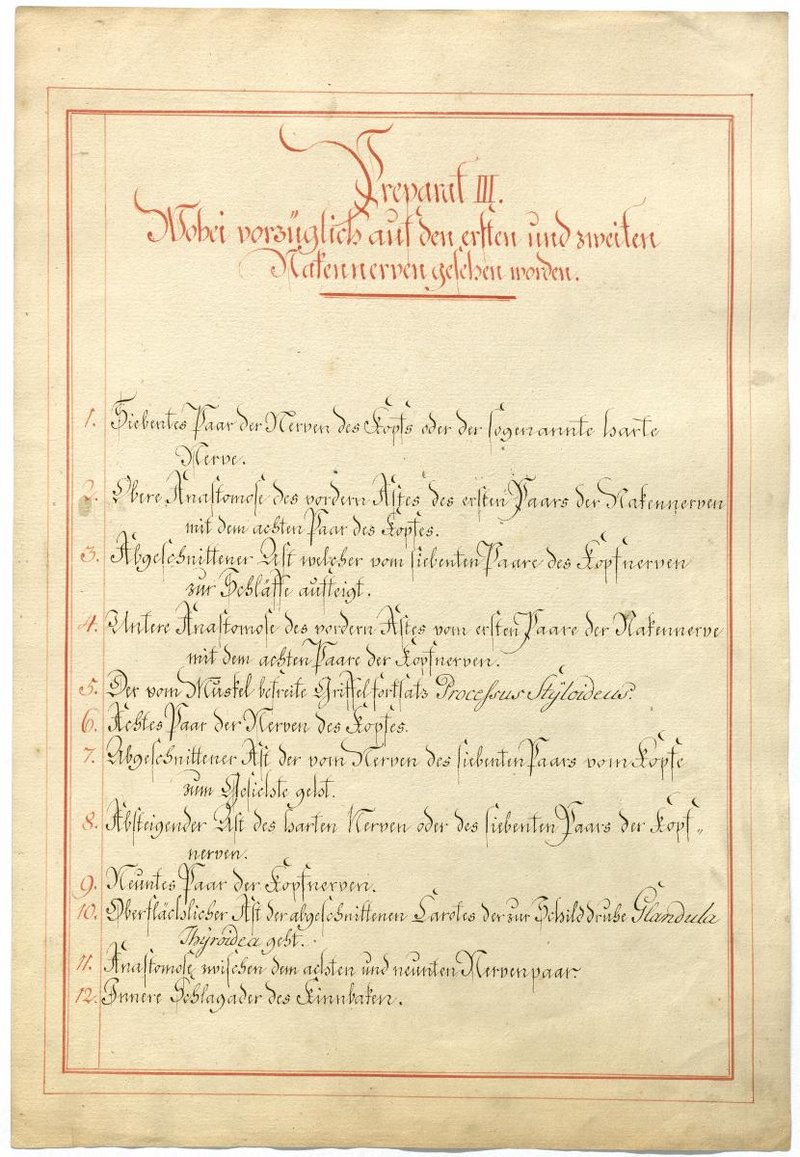 Preparat III.
Wobei vorzüglich auf den ersten und zweiten
Nakennerven gesehen worden.
1. Siebentes Paar der Nerven des Kopfs oder der sogenannte harte
Nerve.
2. Obere Anastomose des vordern Astes des ersten Paars der Nakennerven
mit dem achten Paar des Kopfes.
3. Abgeschnittener Ast welcher vom siebenten Paare des Kopfnerven
zur Schläffe aufsteigt.
4. Untere Anastomose des vordern Astes vom ersten Paare der Nakennerve
mit dem achten Paare der Kopfnerven.
5. Der vom Muskel befreite Griffelfortsatz Processus Stÿloideus.
6. Achtes Paar der Nerven des Kopfes.
7. Abgeschnittener Ast der vom Nerven des siebenten Paars vom Kopfe
zum Gesichte geht.
8. Absteigender Ast des harten Nerven oder des siebenten Paars der Kopf„
nerven.
9. Neuntes Paar der Kopfnerven.
10. Oberflächlicher Ast der abgeschnittenen Carotes der zur Schilddruße Glandula
Thÿroidea geht.
11. Anastomose zwischen dem achten und neunten Nervenpaar
12. Innere Schlagader des Kinnbaken.